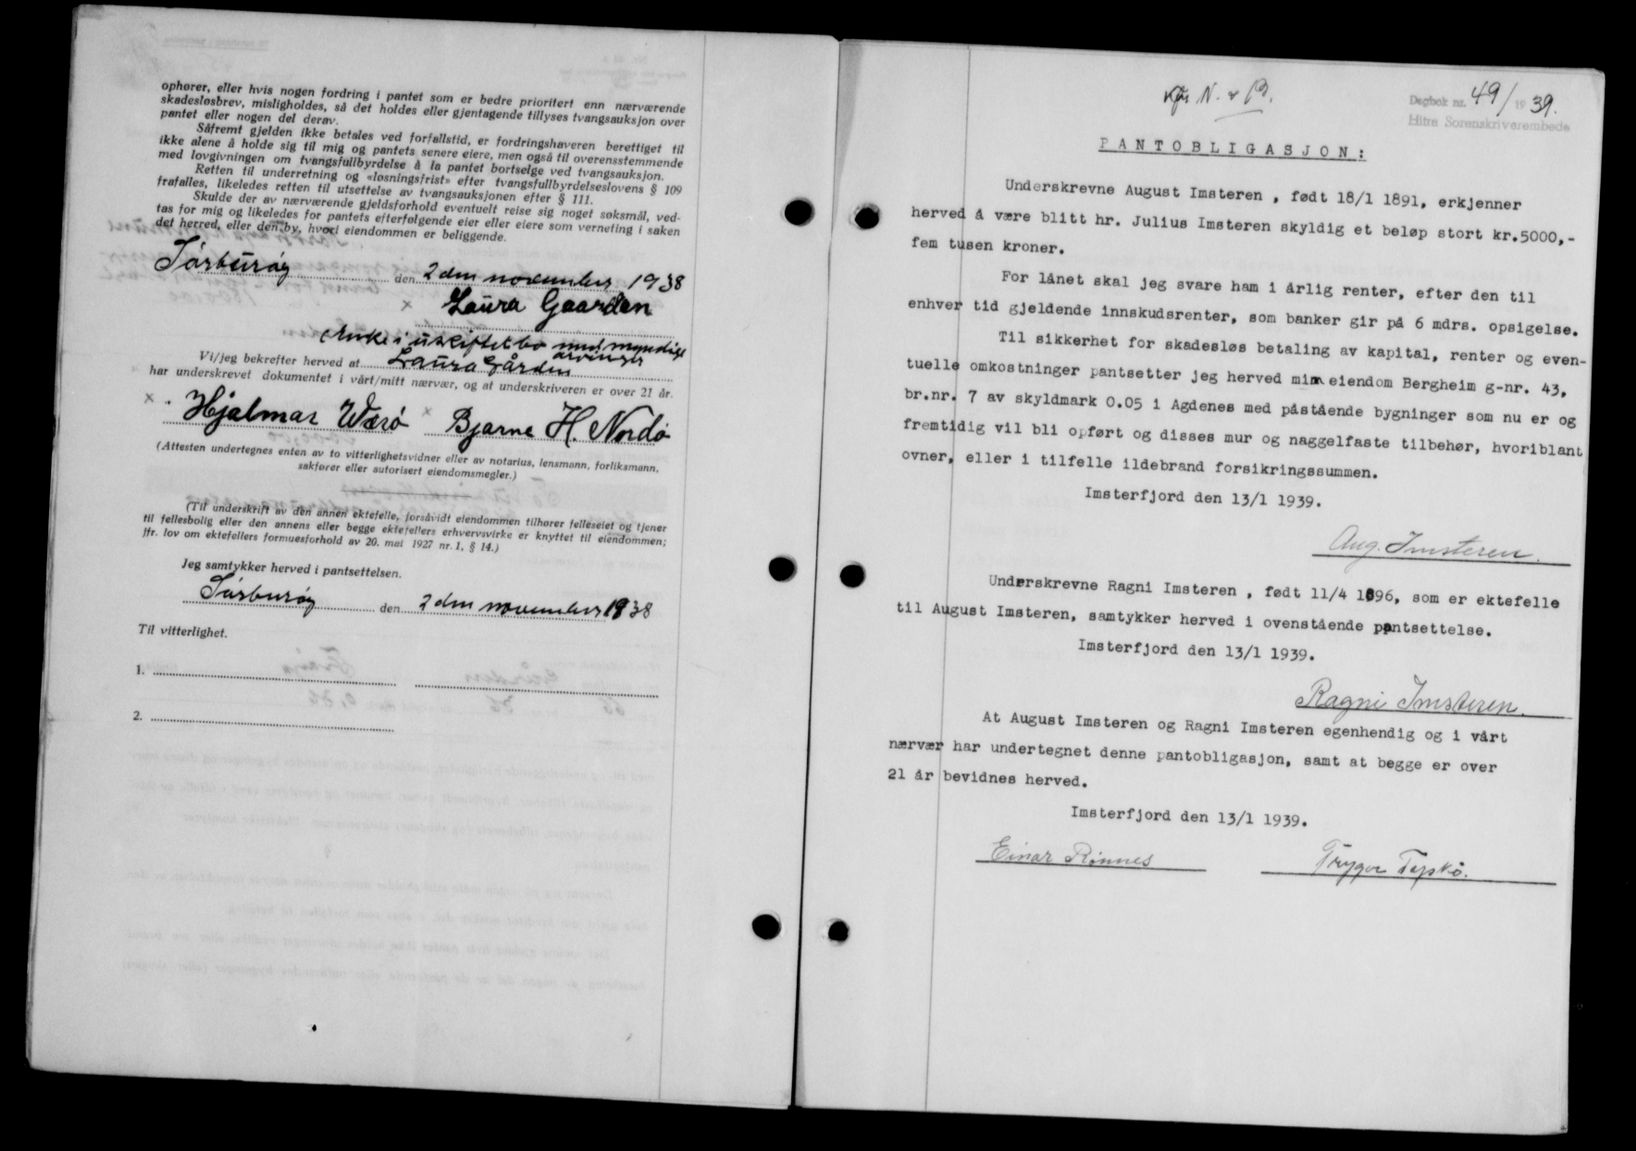 ophører, eller hvis nogen fordring i pantet som er bedre prioritert enn nærværende
skadesløsbrev, misligholdes, så det holdes eller gjentagende tillyses tvangsauksjon over
pantet eller nogen del derav.
Såfremt gjelden ikke betales ved forfallstid, er fordringshaveren berettiget til
ikke alene å holde sig til mig og pantets senere eiere, men også til overensstemmende
med lovgivningen om tvangsfullbyrdelse å la pantet bortselge ved tvangsauksjon.
Retten til underretning og «løsningsfrist» efter tvangsfullbyrdelseslovens § 109
frafalles, likeledes retten til utsettelse av tvangsauksjonen efter § 111.
Skulde der av nærværende gjeldsforhold eventuelt reise sig noget søksmål, ved-
tas for mig og likeledes for pantets efterfølgende eier eller eiere som verneting i saken
det herred, eller den by, hvori eiendommen er beliggende.
Sørburøy den 2 den november 1938
x Laura Gaarden
Enke i uskiftet bo med myndige
arvinger
Vi/jeg bekrefter herved at Laura Gården
har underskrevet dokumentet i vårt/mitt nærvær, og at underskriveren er over 21 år.
x Hjalmar Værø x Bjarne H. Nordø
(Attesten undertegnes enten av to vitterlighetsvidner eller av notarius, lensmann, forliksmann,
sakfører eller autorisert eiendomsmegler.)
(Til underskrift av den annen ektefelle, forsåvidt eiendommen tilhører felleseiet og tjener
til fellesbolig eller den annens eller begge ektefellers erhvervsvirke er knyttet til eiendommen;
jfr. lov om ektefellers formuesforhold av 20. mai 1927 nr. 1, § 14.)
Jeg samtykker herved i pantsettelsen.
Sørburøy den 2 den november 1938
Til vitterlighet.
1.
2.
N. & B.
Dagbok nr. 49/1939.
Hitra Sorenskriverembede
PANTOBLIGASJON:
Underskrevne August Imsteren , født 18/1 1891, erkjenner
herved å være blitt hr. Julius Imsteren skyldig et beløp stort kr.5000,-
fem tusen kroner.
For lånet skal jeg svare ham i årlig renter, efter den til
enhver tid gjeldende innskudsrenter, som banker gir på 6 mdrs. opsigelse.
Til sikkerhet for skadesløs betaling av kapital, renter og even-
tuelle omkostninger pantsetter jeg herved min eiendom Bergheim g-nr. 43,
br.nr. 7 av skyldmark 0.05 i Agdenes med påstående bygninger som nu er og
fremtidig vil bli opført og disses mur og naggelfaste tilbehør, hvoriblant
ovner, eller i tilfelle ildebrand forsikringssummen.
Imsterfjord den 13/1 1939.
Aug. Imsteren.
Underskrevne Ragni Imsteren , født 11/4 1896, som er ektefelle
til August Imsteren, samtykker herved i ovenstående pantsettelse.
Imsterfjord den 13/1 1939.
Ragni Imsteren.
At August Imsteren og Ragni Imsteren egenhendig og i vårt
nærvær har undertegnet denne pantobligasjon, samt at begge er over
21 år bevidnes herved.
Imsterfjord den 13/1 1939.
Einar Rønnes